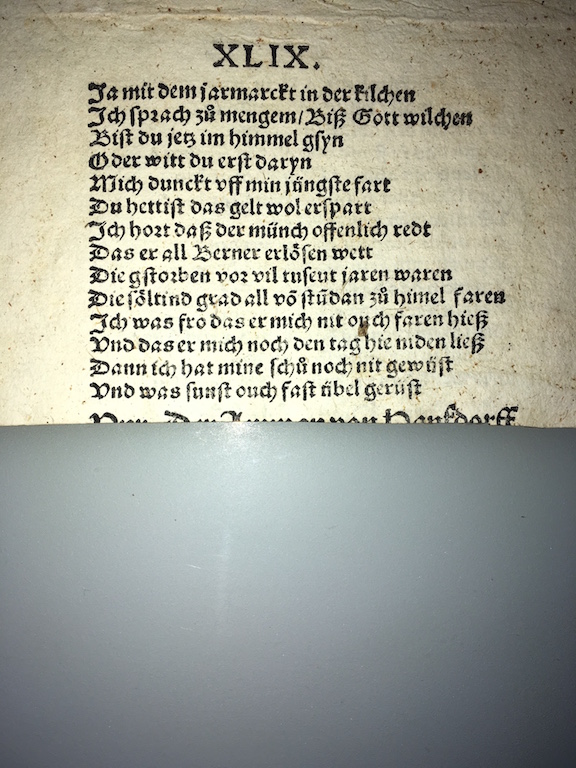 XLIX.
Ja mit dem jarmarckt in der kilchen
Ich sprach zů mengem/Biß Gott wilchen
Bist du jetz im himmel gsyn
Oder witt du erst daryn
Mich dunckt vff min jüngste fart
Du hettist das gelt wol erspart
Ich hort daß der münch offenlich redt
Das er all Berner erlösen wett
Die gstorben vor vil tusent jaren waren
Die söltind grad all võ stũdan zů himel faren
Ich was fro das er mich nit ouch faren hieß
Vnd das er mich noch den tag hie niden ließ
Dann ich hat mine schů noch nit gewüst
Vnd was sunst ouch fast übel gerüst